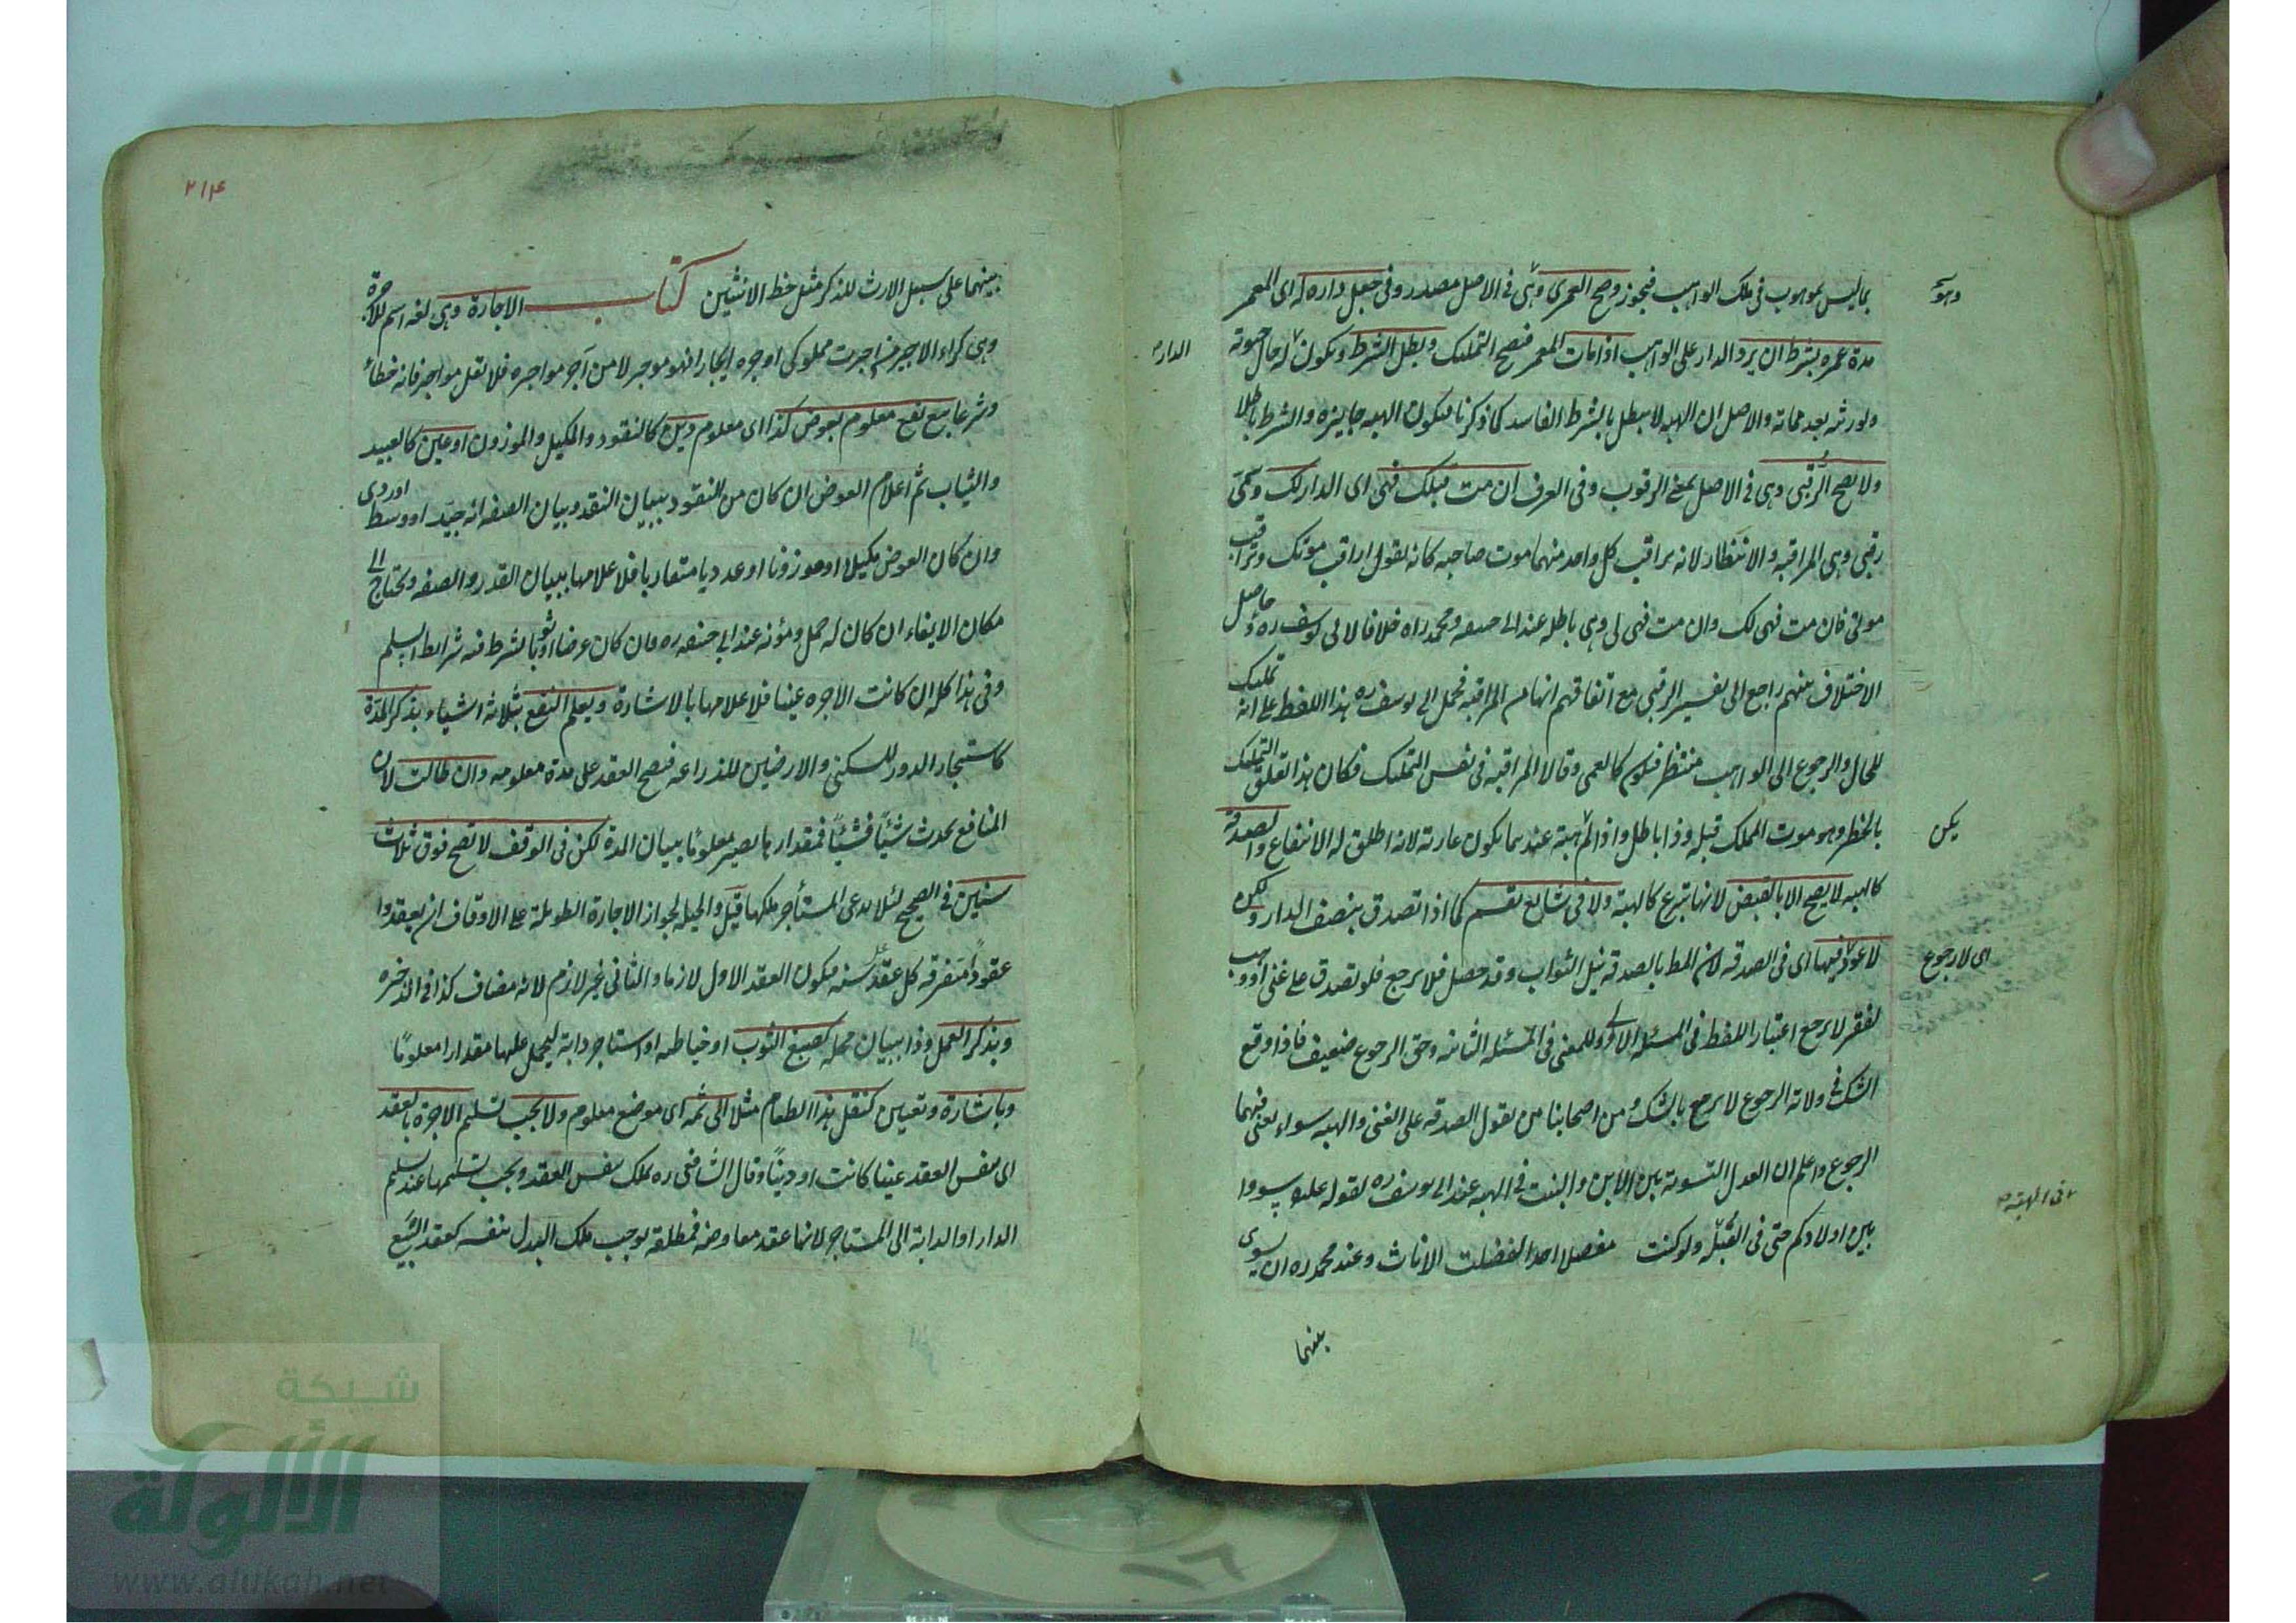 بما ليس بموهوب في ملك الواهب فيجوز وصح العمرى وهى في الاصل مصدر وفى جعل داره له اى المعمر
مدة عمره بشرط ان يرد الدار على الواهب اذا مات المعمر فصح التمليك وبطل الشرط ويكون له حال حيوته
ولورثه بعد مماته والاصل ان الهبه لا يبطل بالشرط الفاسد كما ذكرنا فيكون الهبه جايزه والشرط باطلا
ولا يصح الرقبى وهى في الاصل بمعنى الرقوب وفى العرف ان مت قبلك فهى اى الدار لك وسمى
رقبى وهى المراقبه والانتظار لانه يراقب كل واحد منهما موت صاحبه كانه يقول اراقب موتك وتراقب
موتى فان مت فهى لك وان مت فهى لى وهى باطله عند ابى حنيفه ومحمد راه خلافا لابى يوسف ره وحاصل
الاختلاف بينهم راجع الى تفسير الرقبى مع اتفاقهم انها من المراقبه فحمل ابى يوسف ره هذا اللفظ على انه تمليك
للحال والرجوع الى الواهب منتظر فيكون كالعمرى وقالا المراقبه في نفس التمليك فكان هذا تعلق التمليك
بالخطر وهو موت المملك قبله وذا باطل واذا لم هبة عندهما يكون عارية لانه اطلق له الانتفاع والصدقة
كالهبه لا يصح الا بالقبض لانها تبرع كالهبة ولا فى شايع يقسم كما اذا تصدق بنصف الدار ولكن
لا عود فيها اى فى الصدقه لان المط بالصدقه نيل الثواب وقد حصل فلا يرجع فلو تصدق على غنى او وهب
لفقير لا يرجع اعتبارا للفظ فى المسئله الاولى وللمعنى فى المسئله الثانيه وحق الرجوع ضعيف فاذا وقع
الشك في ولاية الرجوع لا يرجع بالشك ومن اصحابنا من يقول الصدقه على الغنى والهبه سواء يعنى فيهما
الرجوع واعلم ان العدل التسوية بين الابن والبنت فى الهبه عند ابى يوسف ره لقوله عليه سووا
بين اولادكم حتى فى القبله ولو كنت مفضلا احدا لفضلت الاناث وعند محمد ره ان يسوى
بينهما
وهو
الدار
يكن
اى لا رجوع
فى الهبة
۲۱۴
بينهما على سبيل الارث للذكر مثل حظ الانثيين كتاب الاجارة وهى لغه اسم للاجرة
وهى كراء الاجير من اجرت مملوكى اوجره ايجارا فهو موجر لا من آجر مواجره فلا تقل مواجر فانه خطأ
وشرعا بيع نفع معلوم بعوض كذا اى معلوم دين كالنقود والمكيل والموزون او عين كالعبيد
والثياب ثم اعلام العوض ان كان من النقود ببيان النقد وبيان الصفه انه جيد او وسط او ردى
وان كان العوض مكيلا او موزونا او عدديا متقاربا فلاعلامها ببيان القدر والصفه ويحتاج الى
مكان الايفاء ان كان له حمل ومؤنه عند ابى حنيفه ره وان كان عرضا او ثوبا لشرط فيه شرايط السلم
وفى هذا كله ان كانت الاجره عينا فلاعلامها بالاشارة ويعلم النفع بثلاثه اشياء بذكر المدة
كاستيجار الدور للسكنى والارضين للزراعه فيصح العقد على مدة معلومه وان طالت لان
المنافع يحدث شيئا فشيئا فمقدارها يصير معلوما ببيان المدة لكن فى الوقف لا تصح فوق ثلاث
سنين فى الصحيح لئلا يدعى المستأجر ملكها قيل والحيل لجواز الاجارة الطويلة على الاوقاف ان يعقدوا
عقودا متفرقه كل عقد على سنه فيكون العقد الاول لازما والثانى غير لازم لانه مضاف كذا فى الذخيره
وبذكر العمل وذا ببيان محله كصبغ الثوب او خياطته او استاجر دابة ليحمل عليها مقدارا معلوما
وباشارة وتعيين كنقل هذا الطعام مثلا الى ثمه اى موضع معلوم ولا يجب تسليم الاجرة بالعقد
اى بنفس العقد عينا كانت او دينا وقال الشافعى ره يملك بنفس العقد ويجب تسليمها عند تسليم
الدار او الدابة الى المستاجر لانها عقد معاوضه فمطلقه يوجب ملك البدل بنفسه كعقد البيع
شبكة
الألوكة
www.alukah.net